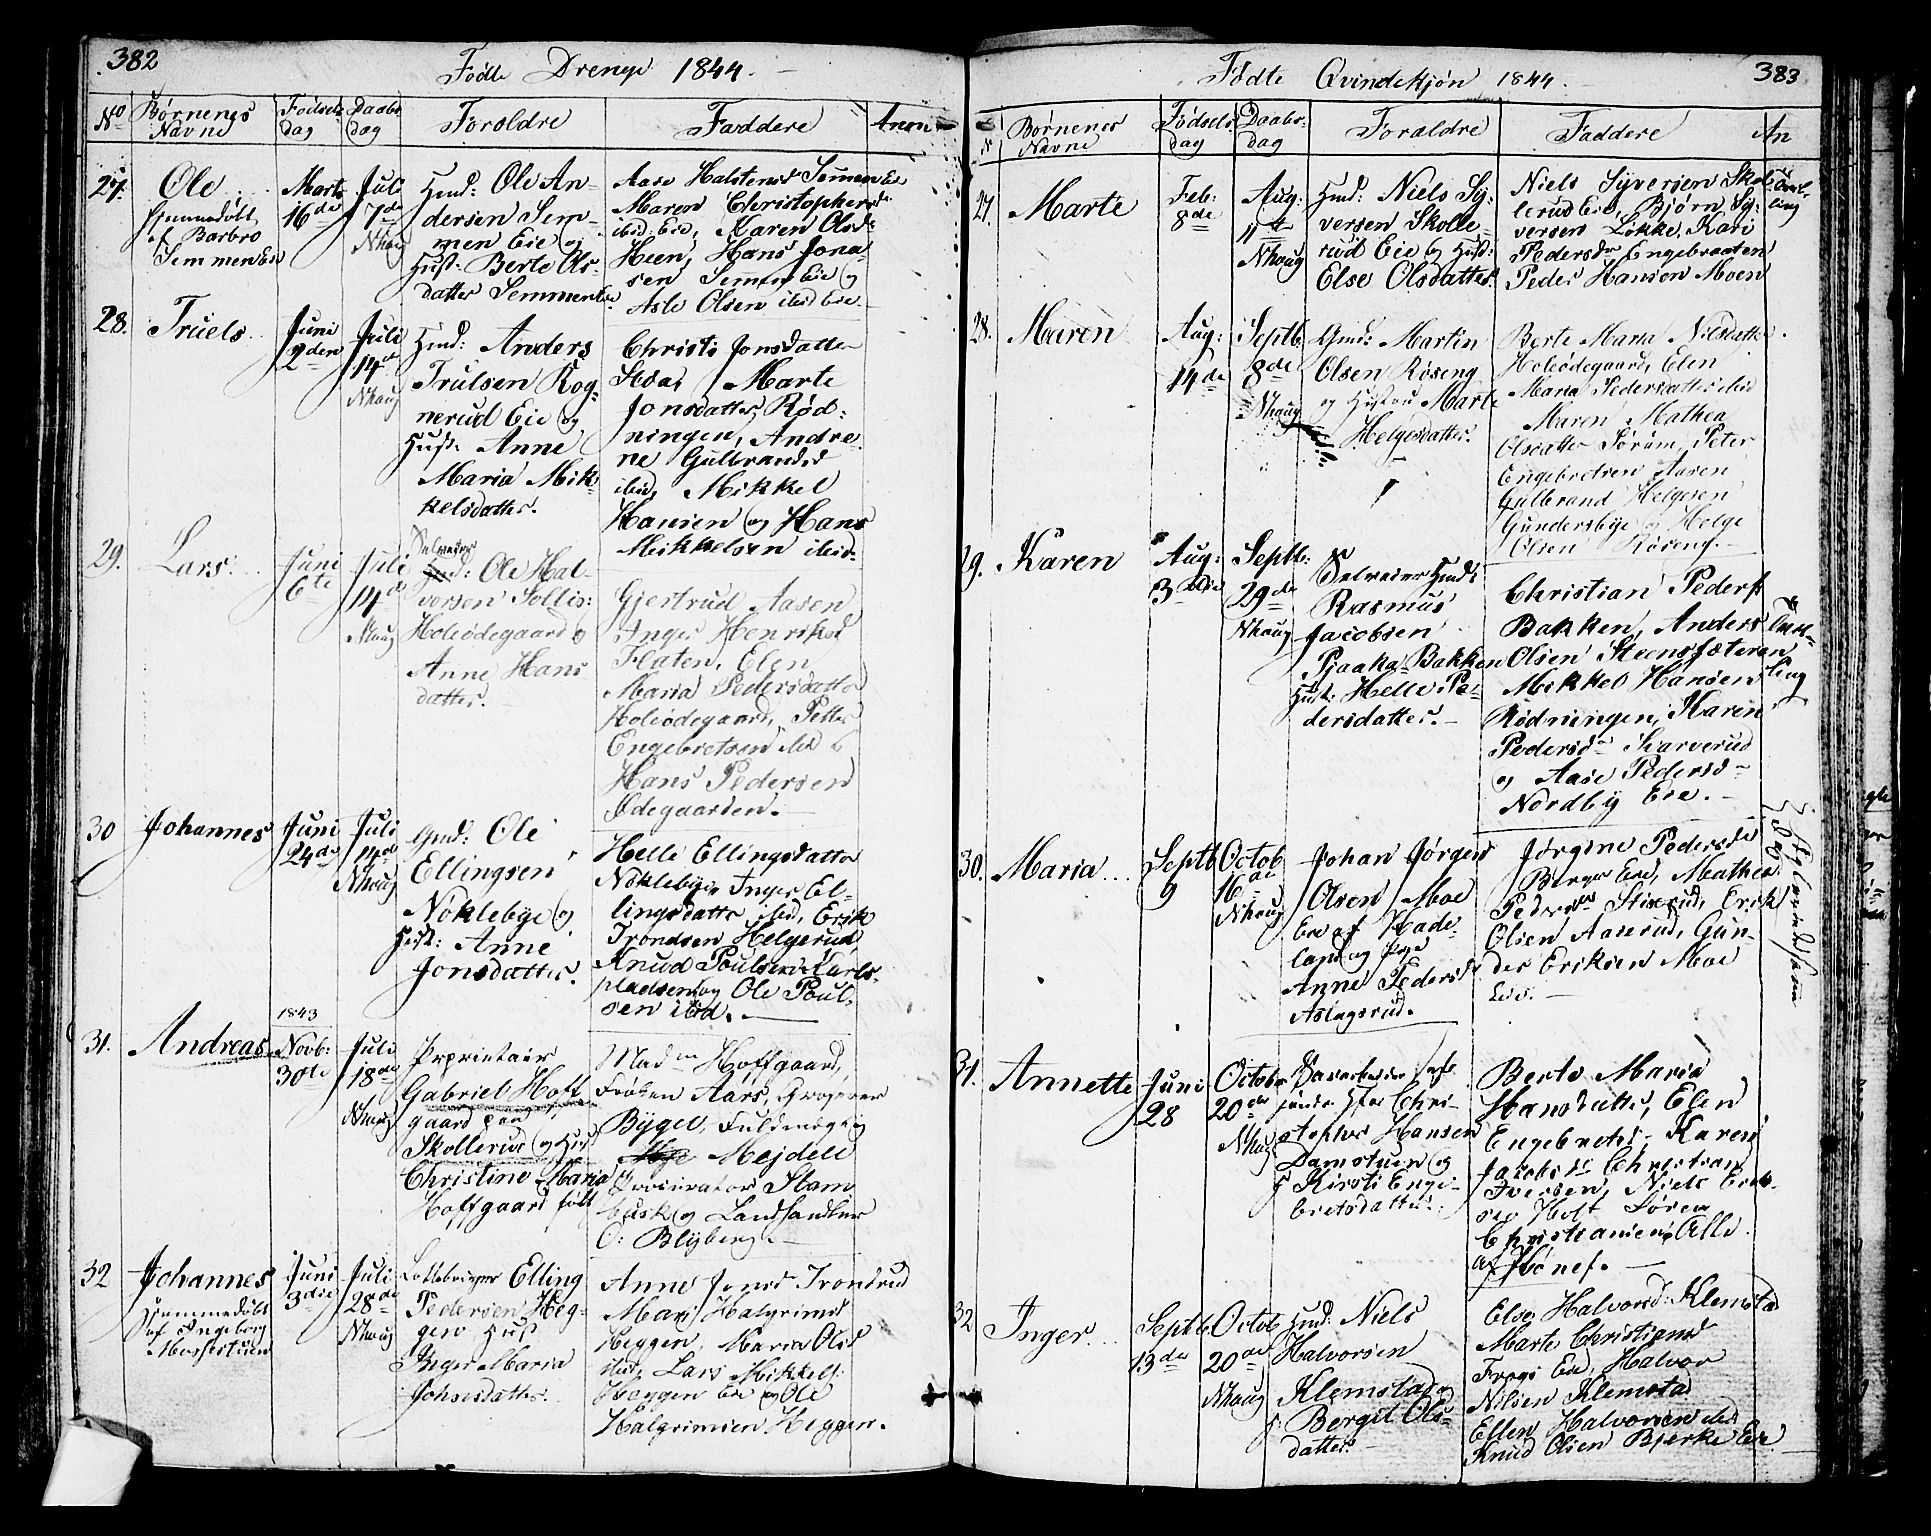 382
Födte Drenge 1844.
No Børnenes Navne Fødsels dag Daabs dag Foroldre Faddere Anm
27. Ole
Hjemmedöbt
af Barbro
Semmen Eie
Marts 16de
Juli 7de
Nhaug
Hmd: Ole An-
dersen Sem-
men Eie og
Hust: Berte Ols-
datter Semmen Eie
Aase Halstensd Semmen Eie
Maren Christophersd
ibid Eie, Karen Olsd
Heen, Hans Jona-
sen Semmen Eie og
Asle Olsen ibid Eie
28. Truels
Juni 2den
Juli 14de
Nhaug
Hmd: Anders
Trulsen Kog-
nerud Eie og
Hust: Anne
Maria Mik-
kelsdatter.
Christi Jonsdatter
Marte
Jonsdatter Rød-
ningen, Andre-
ne Gulbrandsd
ibid, Mikkel
Hansen og Hans
Mikkelsen ibid.
29. Lars
Juni 6te
Juli 14de
Nhaug
Selveier
Ole Hal-
vorsen Sollis:
Holeödegaard og
Anne Hans
datter.
Gjertrud Aasen
Inger Henriksd
Flaten, Elen
Maria Pedersdatter
Holeödegaard, Petter
Engebretsen ibid &
Hans Pedersen
Ödegaarden.
30 Johannes
Juni 24de
Juli 14de
Nhaug
Gmd: Ole
Ellingsen
Noklebye og
Hust: Anne
Jonsdatter.
Helle Ellingsdatter
Noklebye Inger El-
lingsdatter ibid, Erik
Trondsen Helgerud
Knud Poulsen Karls-
pladsen og Ole Poul-
sen ibid.
31. Andreas
1843
Novb: 30te
Juli 18de
Nhaug
Proprietair
Gabriel Hoff-
gaard paa
Skollerud og Hus
Christine Maria
Hoffgaard född
Madm Hoffgaard,
Fröken Aars,
Bygel, Fuldmægtig
Mejdell
Procurator Stam
busk og Landhandler
O: Blyberg.
32 Johannes
Hjemmedöbt
af Ingeborg
Juni 3die
Juli 28de
Nhaug
Elling
Pedersen Heg-
gen Hus
Inger Maria
Johnsdatter.
Anne Jonsd Trondrud
Mari Halgrimsd
Heggen, Maria Olsd
ibid, Lars Mikkels:
Heggen Eie og Ole
Halgrimsen Heggen.
383
Födte Qvindekjøn 1844.
N Børnenes Navne Födsels dag Daabs dag Foraldre Faddere An
27. Marte
Feb: 8de
Aug: 11te
Nhaug
Hmd: Niels Sy-
versen Skolle-
rud Eie og Hust:
Else Olsdatter
Niels Syversen Skol-
lerud Eie, Bjørn Sy-
versen Løkke, Kari
Pedersdr Engebraaten
Peder Hansen Moen
28. Maren
Aug: 14de
Septb. 8de
Nhaug
Gmd: Martin
Olsen Röseng
og Hustru Marte
Helgesdatter.
Berte Maria Nilsdatter
Holeödegaard, Elen
Maria Pedersdatter ibid
Maren Mathea
Olsdatter Sørum, Peter
Engebretsen Aasen
Gulbrand Helgesen
Gundersbye og Helge
Olsen Röseng.
29. Karen
Aug: 3die
Septb: 29de
Nhaug
Selveier Hmd:
Rasmus
Jacobsen
Pjaaka-Bakken
Hust: Helle Pe-
dersdatter.
Christian Peders:
Bakken, Anders
Olsen Steensfæteren
Mikkel Hansen
Rødningen, Karen
Pedersdr Svarverud
og Aase Pedersdr
Nordby Eie.
30. Maria
Septb 9
Octob 16de
Nhaug
Johan Jörgen
Olsen Moe
Eie af Hade-
land og Pige
Anne Pedersdr
Aslagsrud.
Jörgine Pedersdr
Berger Eie, Mathea
Pedersdr Stixrud, Erik
Olsen Aaserud, Gun-
der Eriksen Moe
Eie.
31. Annette
Juni 28
Octobr 20de
Nhaug
Chri-
stopher Hansen
Damstuen og
Kirsti Enge-
bretsdatter.
Berte Maria
Hansdatter, Elen
Engebretsd: Karen
Jacobsdr Christian
Iversen, Niels Erik-
sen Hoft Sören
Christiansen, Alle
af Hönef.
32 Inger
Septb 13de
Octob 20de
Nhaug
Hmd: Niels
Halvorsen
Klemstad og
Bergit Ols-
datter.
Else Halvorsd: Klemstad
Marte Christiansd
Frogs Eie, Halvor
Nilsen Klemstad
Ellen Halvorsen ibid
Knud Olsen Bjerke Eie